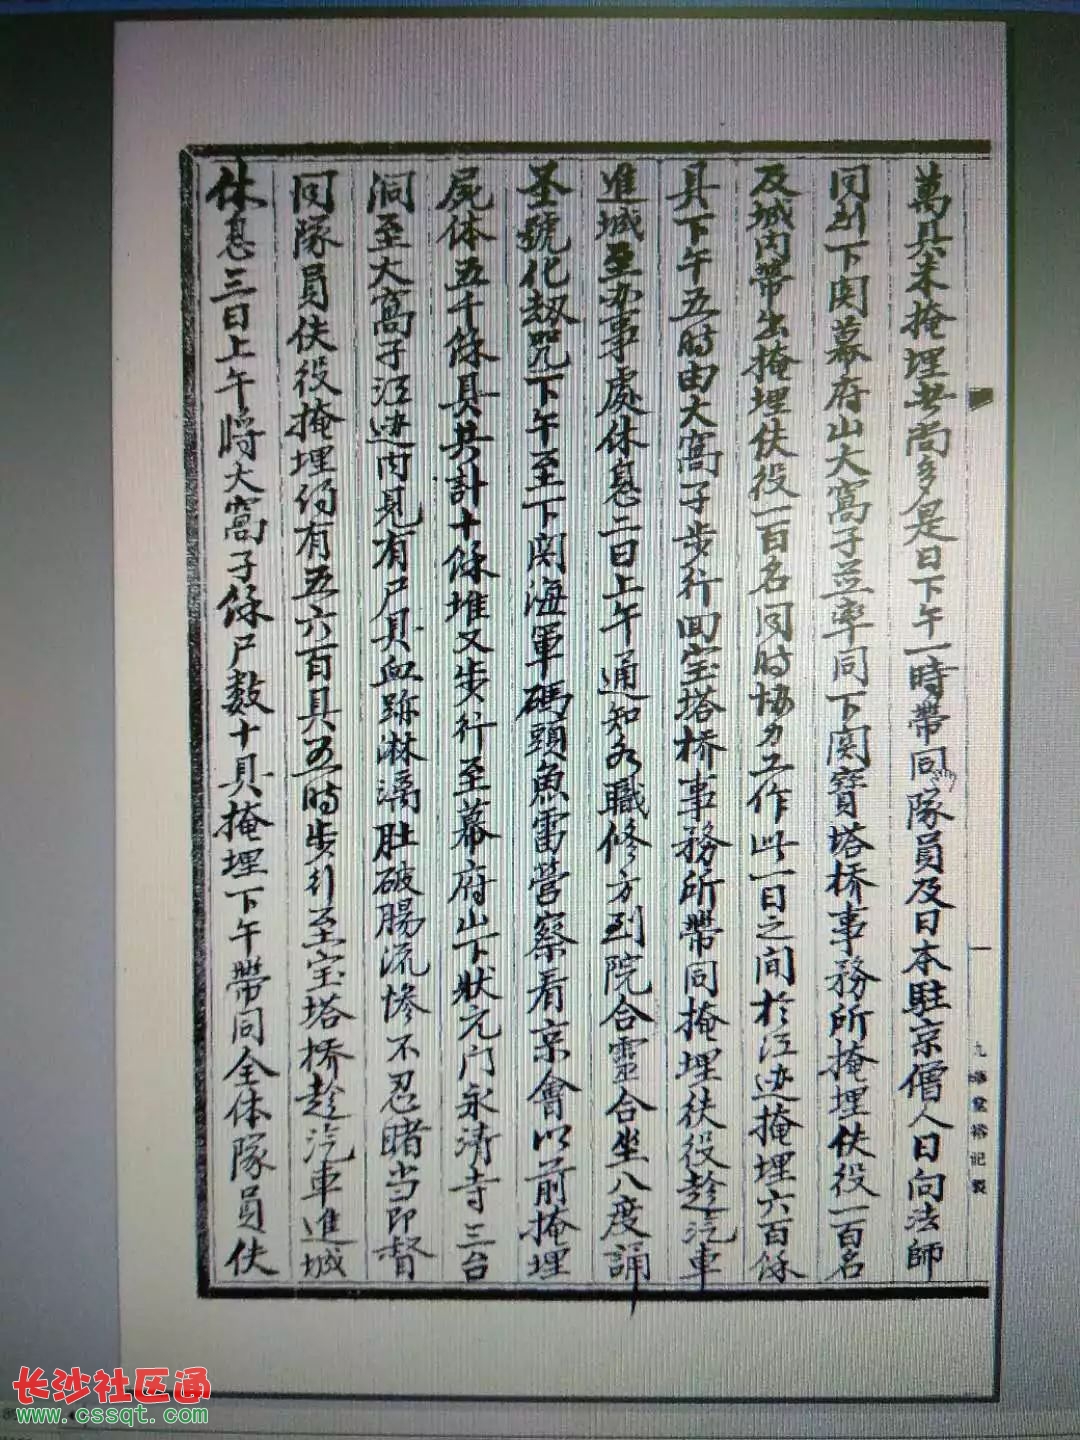 萬具未掩埋者尚多是日下午一時帶同隊員及日本駐京僧人日向法師
同到下関幕府山大窩子並率同下関寶塔橋事務所掩埋伕役一百名
及城内帶出掩埋伕役一百名同时協力工作此一日之间於江边掩埋六百餘
具下午五时由大窩子步行回宝塔橋事務所帶同掩埋伕役趁汽車
進城至办事處休息二日上午通知各職修方到院合靈合坐八度誦
圣號化劫咒下午至下関海軍碼頭魚雷营察看京會以前掩埋
屍体五千餘具共計十餘堆又步行至幕府山下狀元门永清寺三台
洞至大窩子江边内見有尸具血跡淋漓肚破腸流惨不忍睹当即督
同隊員伕役掩埋约有五六百具五时步行至宝塔橋趁汽車進城
休息三日上午將大窩子餘尸数十具掩埋下午帶同全体隊員伕
一
长沙社区通
www.cssqt.com